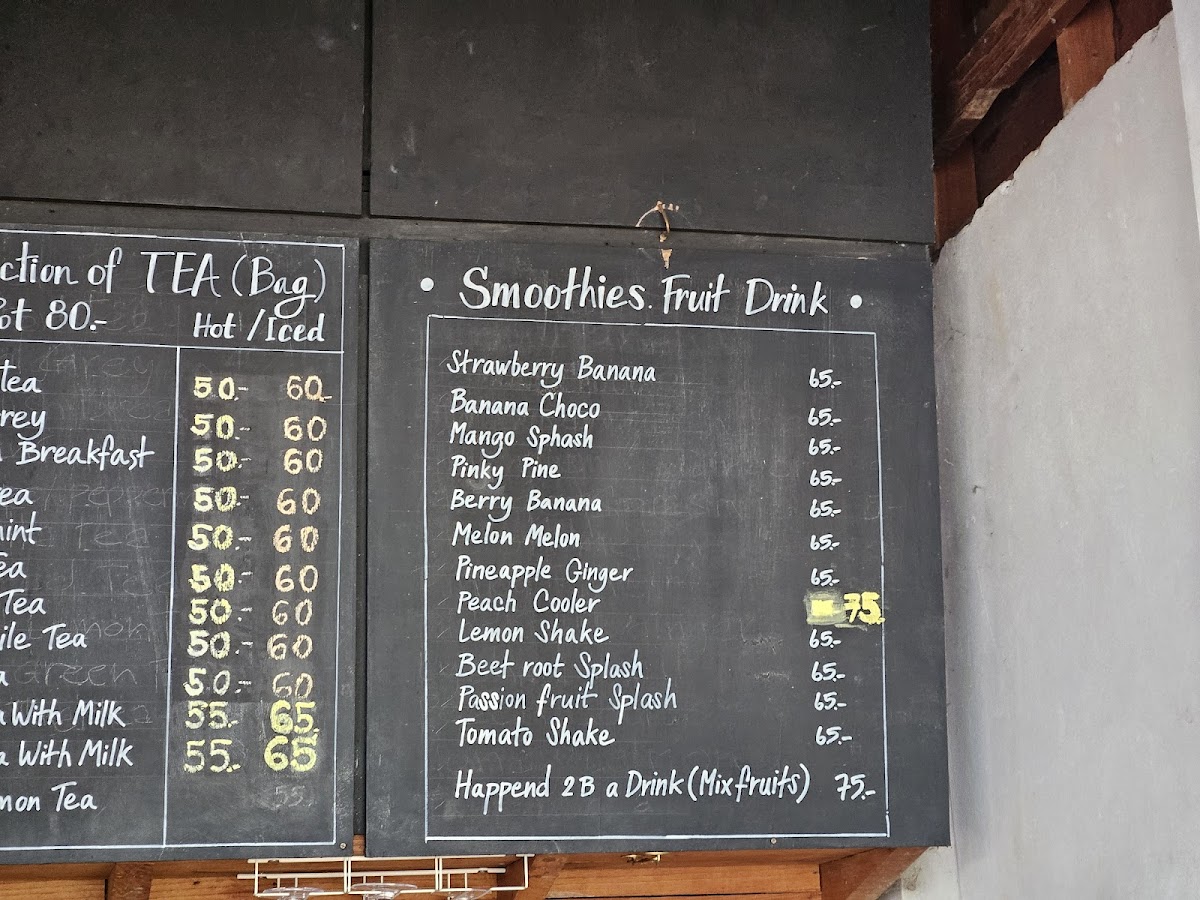 ction of TEA (Bag)
ot 80.-
Hot / Iced
tea 50.- 60.-
rey 50.- 60
Breakfast 50.- 60
ea 50.- 60
int 50.- 60
ea 50.- 60
Tea 50.- 60
ile Tea 50.- 60
a 50.- 60
a With Milk 55.- 65.
a With Milk 55.- 65
mon Tea 55
• Smoothies. Fruit Drink •
Strawberry Banana 65.-
Banana Choco 65.-
Mango Sphash 65.-
Pinky Pine 65.-
Berry Banana 65.-
Melon Melon 65.-
Pineapple Ginger 65.-
Peach Cooler 75.
Lemon Shake 65.-
Beet root Splash 65.-
Passion fruit Splash 65.-
Tomato Shake 65.-
Happend 2B a Drink (Mix fruits) 75.-